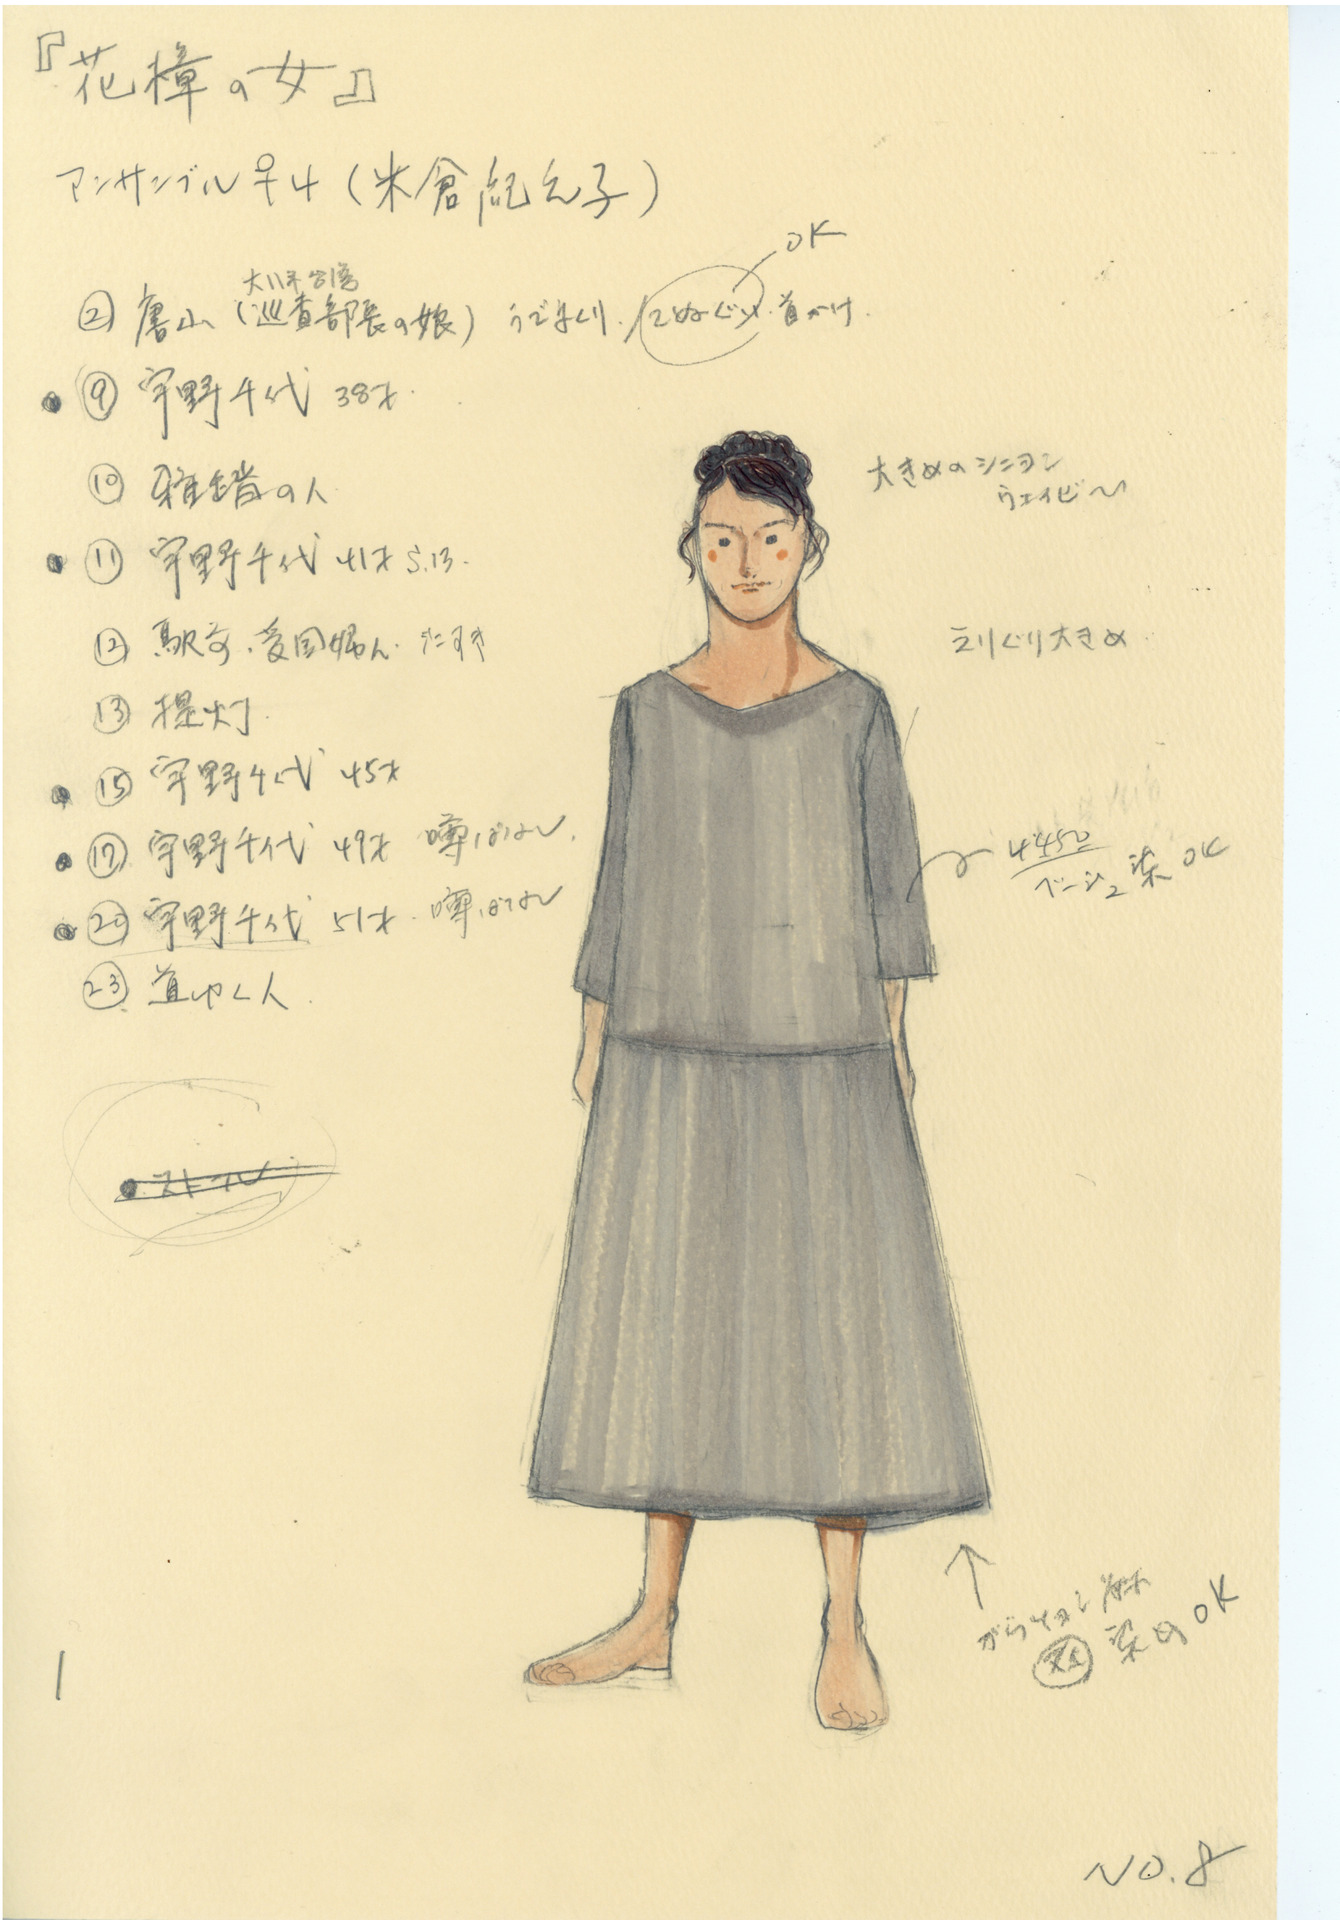 『花樟の女』
アンサンブル♀4(米倉紀之子)
② 唐山(巡査部長の娘) うでまくり. てぬぐい. 首かけ.
OK
⑨ 宇野千代 38才.
⑩ 雑踏の人
⑪ 宇野千代 41才 S.13.
⑫ 駅前.愛国婦人.
⑬ 提灯
⑮ 宇野千代 45才
⑰ 宇野千代 49才 噂ばなし.
⑳ 宇野千代 51才. 噂ばなし
㉓ 道ゆく人.
大きめのシニヨン
ウェイビ〜
えりぐり大きめ
ベージュ染 OK
染め OK
NO.8